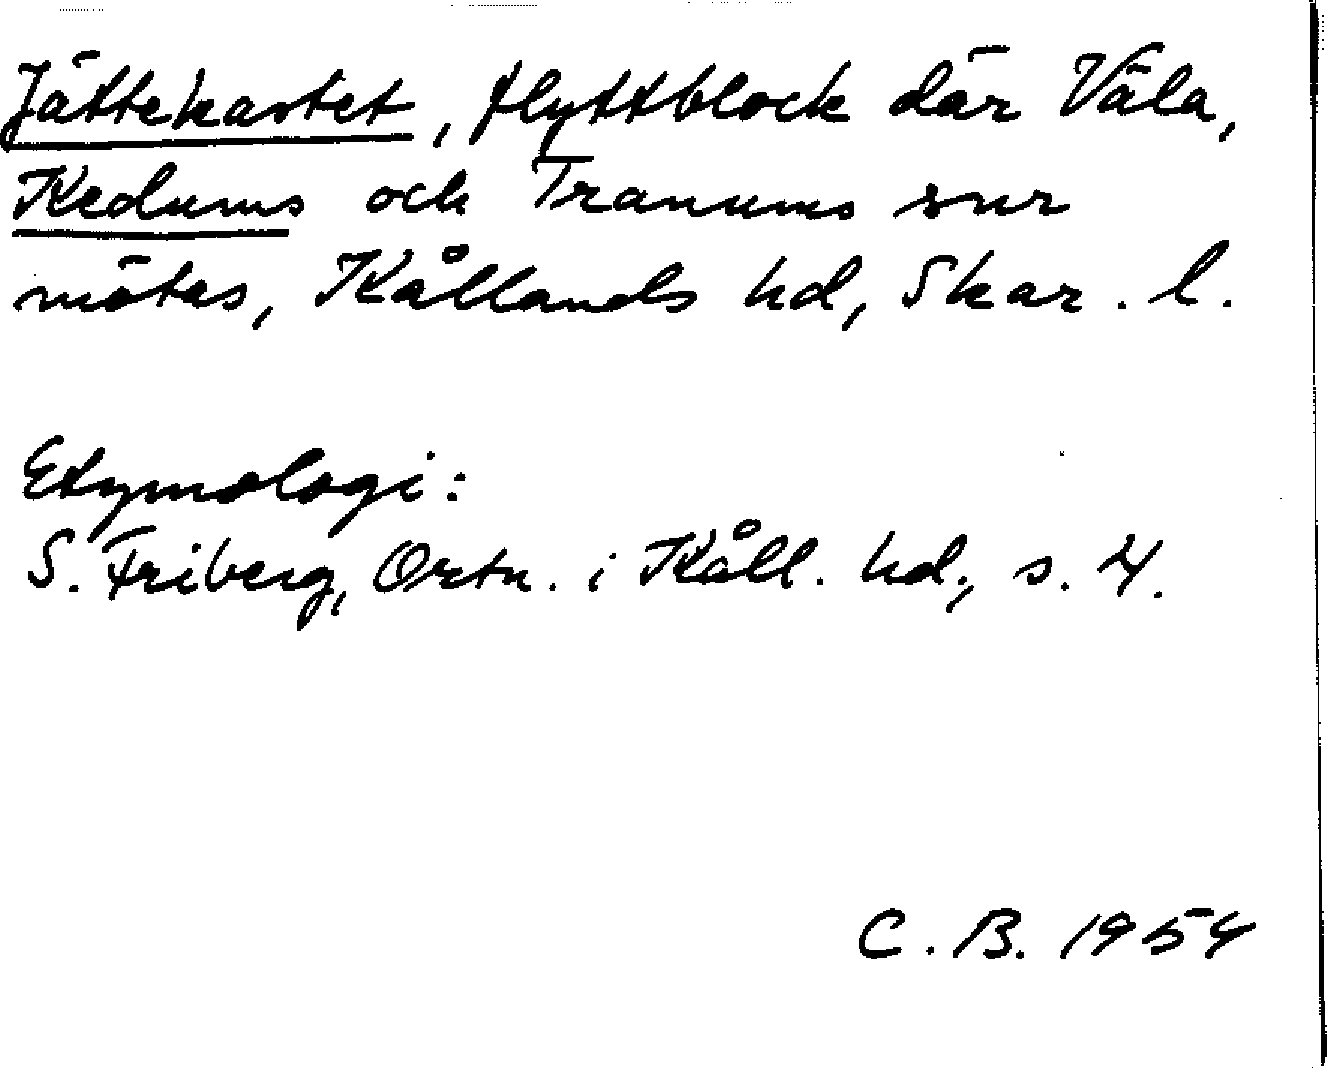 Jättekastet, flyttblock där Väla,
Kedums och Tranums snr
mötas, Kållands hd, Skar. l.
Etymologi:
S. Friberg, Ortn. i Kåll. hd., s. 4.
C. B. 1954